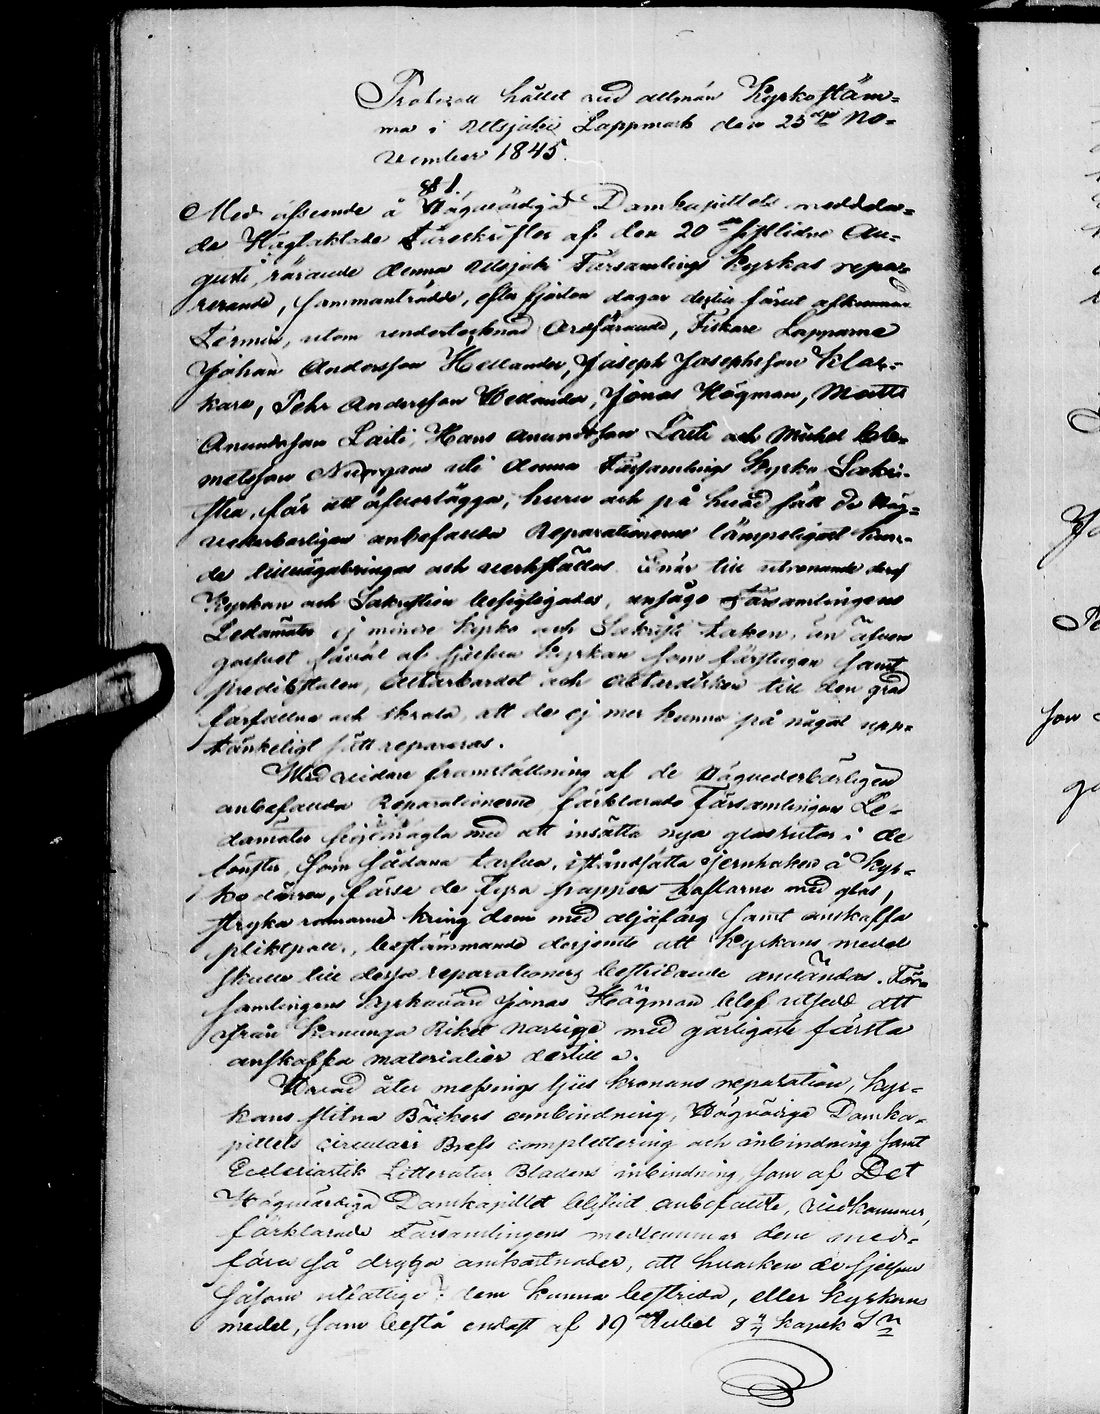 Protocoll hållet vid allmän Kyrkostäm-
ma i Utsjoki Lappmark den 25de No-
vember 1845.
§ 1.
Med afseende å Högvärdiga Domkapitlets meddela-
de Höglaktade Föreskrifter af den 20de sistlidne Au-
gusti, rörande denna Utsjoki Församlings Kyrkas repa-
rerande, sammanträdde, efter fjorton dagar dertill förut afkunnad
Termin, utom undertecknad Ordförande, Fiskare Lapparne
Johan Andersson Hellander, Joseph Josephsson Klas-
kare, Pehr Andersson Hellander, Jonas Högman, Matts
Anundsson Laiti, Hans Anundsson Laiti och Michel Cle-
metsson uti denna Församlings Kyrko Sakri-
stia, för att öfverlägga, huru och på hvad sätt de Hög-
vederbörligen anbefallda Reparationerne lämpeligast kun-
de tillvägabringas och verkställas. Enär till utrönande deraf
Kyrkan och Sakristian besigtigades, ansågo Församlingens
Ledamöter ej mindre Kyrko och Sakristi taken, än äfven
golfvet såväl uti sjelfva Kyrkan som förstugan samt
predikstolen, Altarbordet och altardisken till den grad
förfallna och skrala, att de ej mer kunna på något upp-
tänkeligt sätt repareras.
Wid vidare framställning af de Högvederbörligen
anbefallda Reparationerne förklarade Församlingens Le-
damöter sig med att insätta nya glasrutor i de
fönster, som sådana tarfva, iståndsätta jernhaken å Kyr-
ko dörren, förse de fyra trappers taflorne med glas,
stryka ramarne kring dem med oljefärg samt anskaffa
pliktpall, bestämmande derjemte att Kyrkans medel
skulle till dessa reparationers bestridande användas. För-
samlingens Kyrkovärd Jonas Högman blef utsedd att
ifrån Konunga Riket Norrige med görligaste första
anskaffa materialier dertill.
Hvad åter messings ljus kronans reparation, Kyr-
kans slitna Böckers ombindning, Högvördiga Domka-
pitlets circulair Brefs complettering och inbindning samt
Ecclesiastik Litteratur Bladens inbindning, som af Det
Högvärdiga Domkapitlet blifvit anbefallt, vidkommer,
förklarade Församlingens medlemmar dem med-
föra så dryga omkostnader, att hvarken de sjelfve
såsom utfattige dem kunna bestrida, eller Kyrkans
medel, som bestå endast af 19 Rubel 8 4/7 kopek Sr